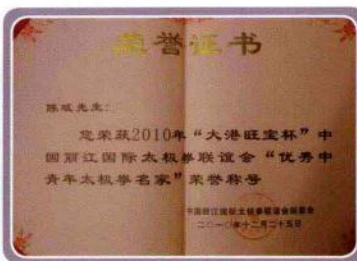 荣誉证书
先生:
您荣获2010年“大港旺宝杯”中
国丽江国际太极拳联谊会“优秀中
青年太极拳名家”荣誉称号
中国丽江国际太极拳联谊会组委会
二〇一〇年十二月二十五日